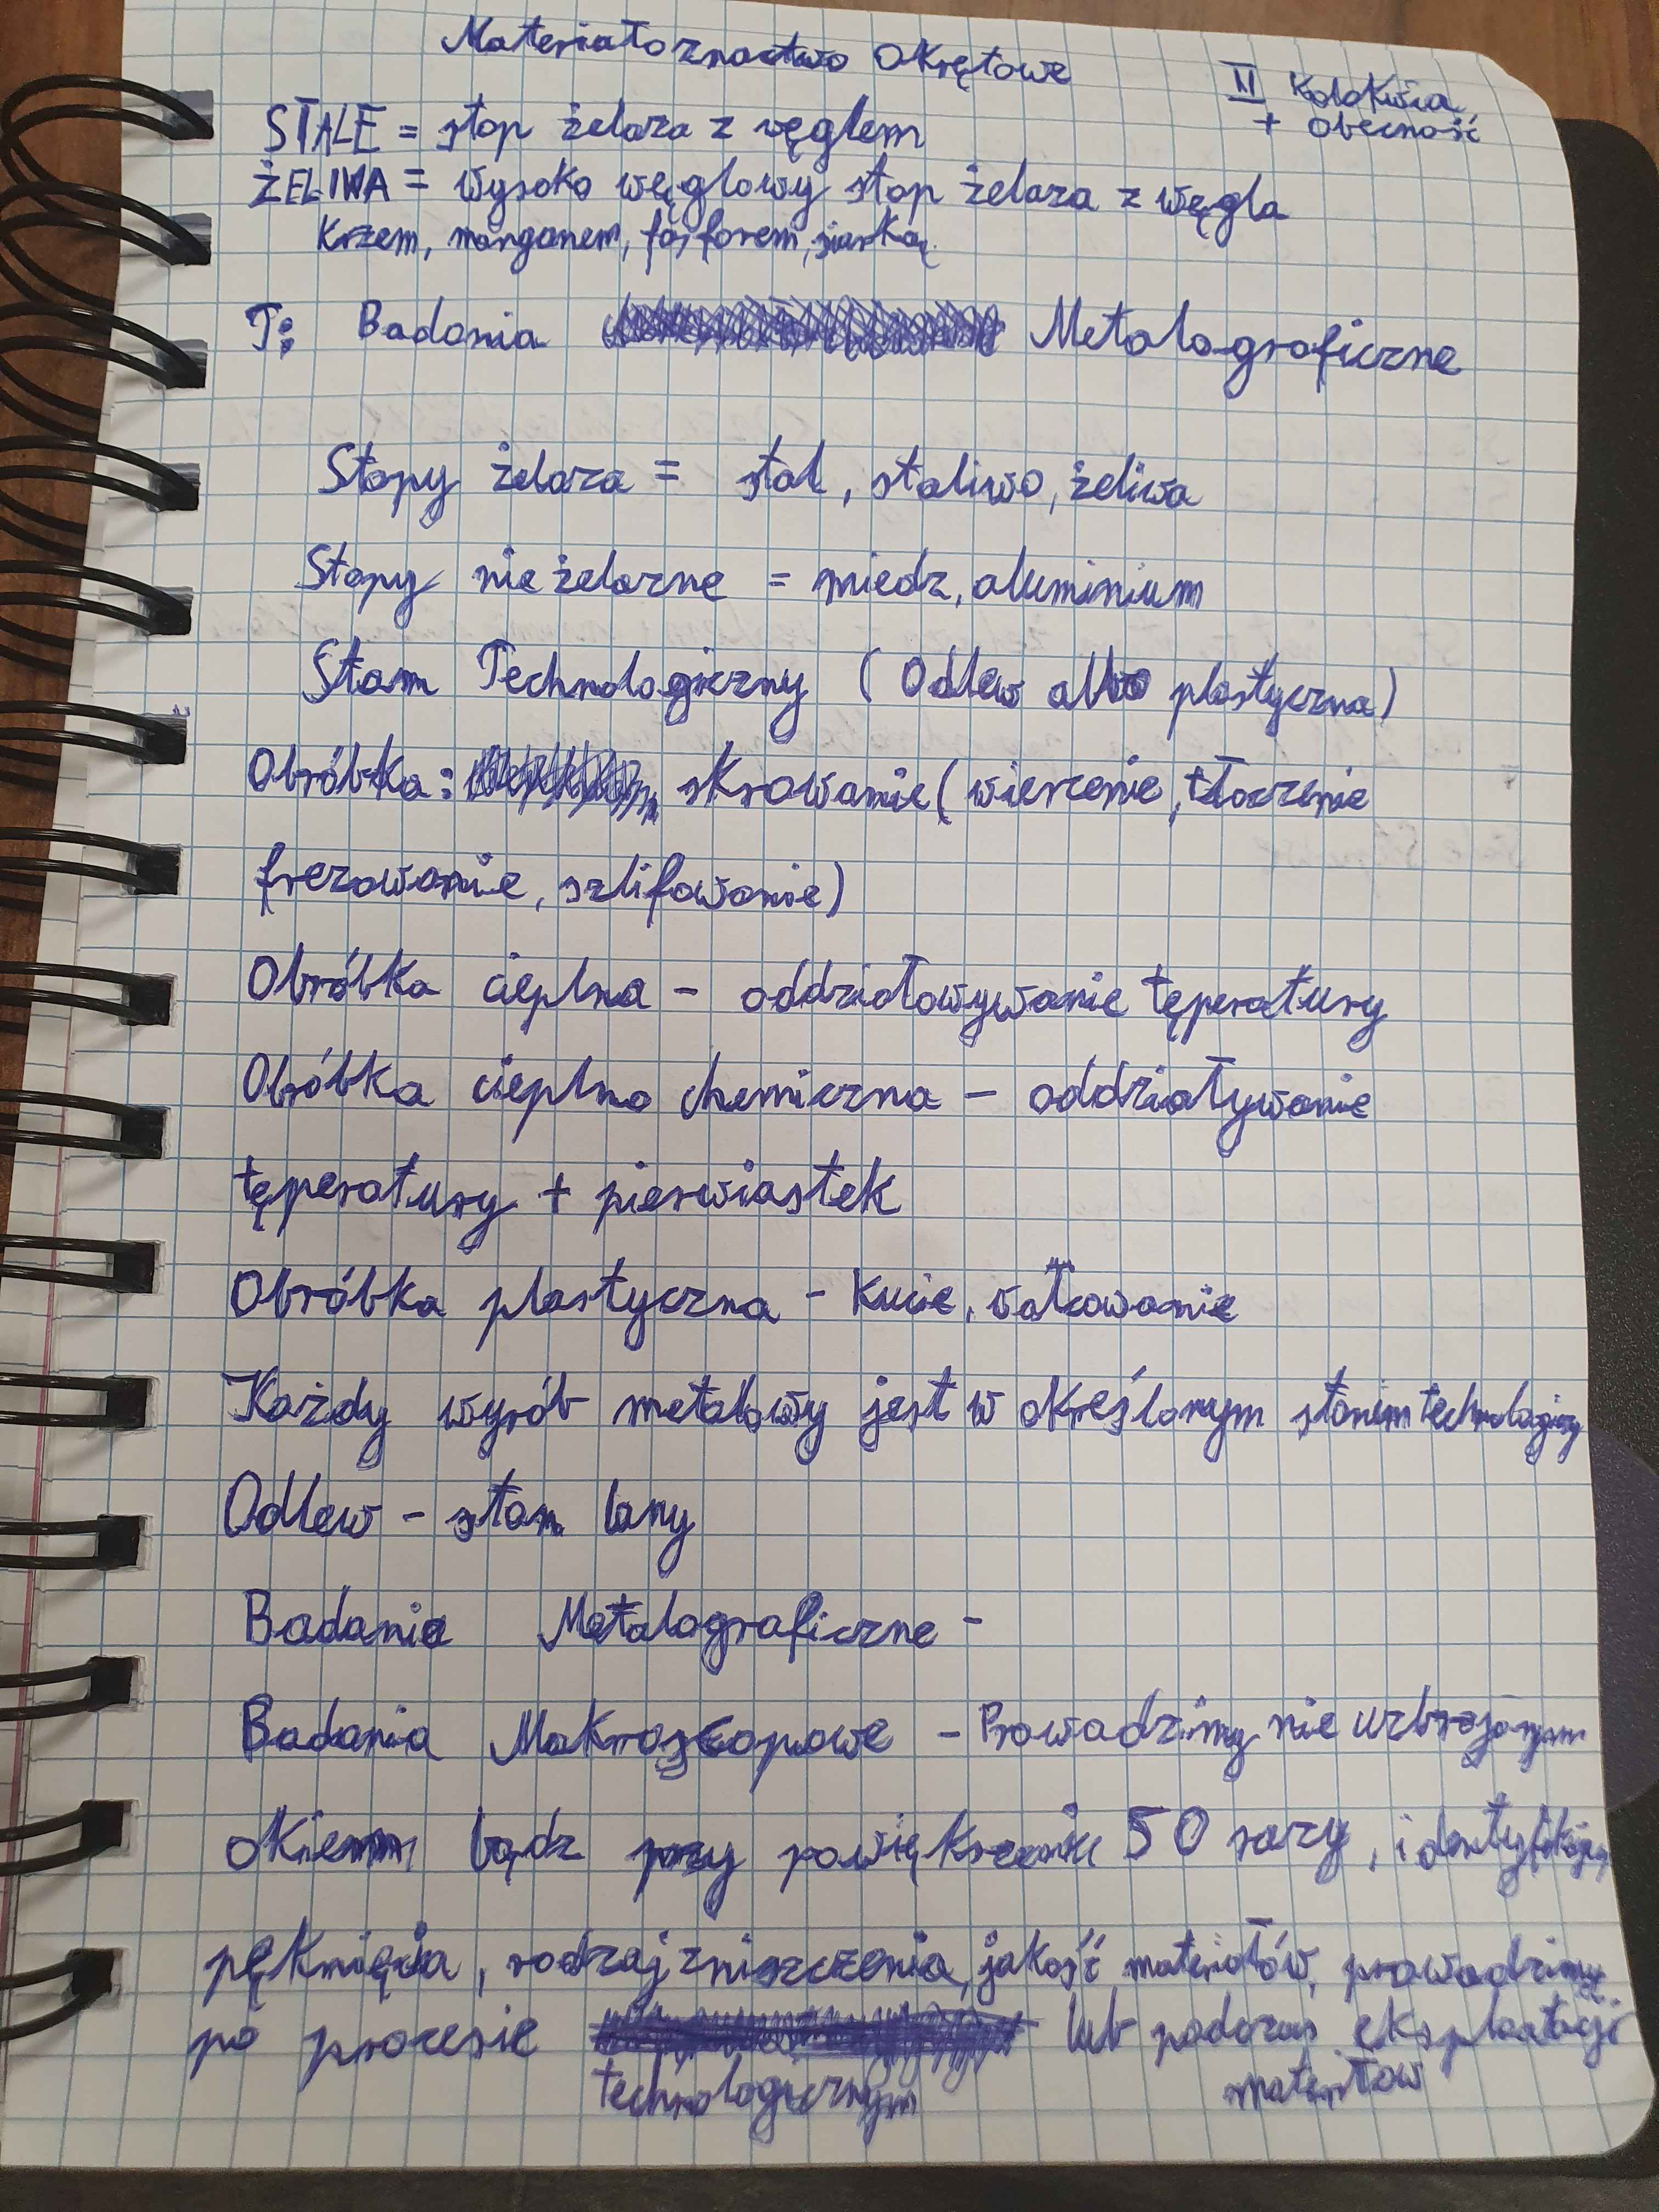 Materiałoznactwo Okrętowe
II Kolokwia
+ obecność
STALE = stop żelaza z węglem
ŻELIWA = wysoko węglowy stop żelaza z węgla
Krzem, manganem, fosforem, siarką
T: Badania Metalograficzne
Stopy żelaza = stal, staliwo, żeliwa
Stopy nie żelazne = miedz, aluminium
Stam Technologiczny (Odlew albo plastyczna)
Obróbka: skrowanie (wiercenie, tłoczenie
frezowanie, szlifowanie)
Obróbka cieplna - oddziaływywanie tęperatury
Obróbka cieplno chemiczna - oddziaływanie
tęperatury + pierwiastek
Obróbka plastyczna - Kucie, walcowanie
Każdy wyrób metalowy jest w określonym stanem
Odlew - stan lany
Badania Metalograficzne -
Badania Makroskopowe - Prowadzimy nie uzbrojonym
okiem bądz przy powiększeniu 50 razy,
pęknięcia, rodzaj zniszczenia, jakość materiałów, prowadzimy
po procesie lub podczas eksploatacji
technologicznym